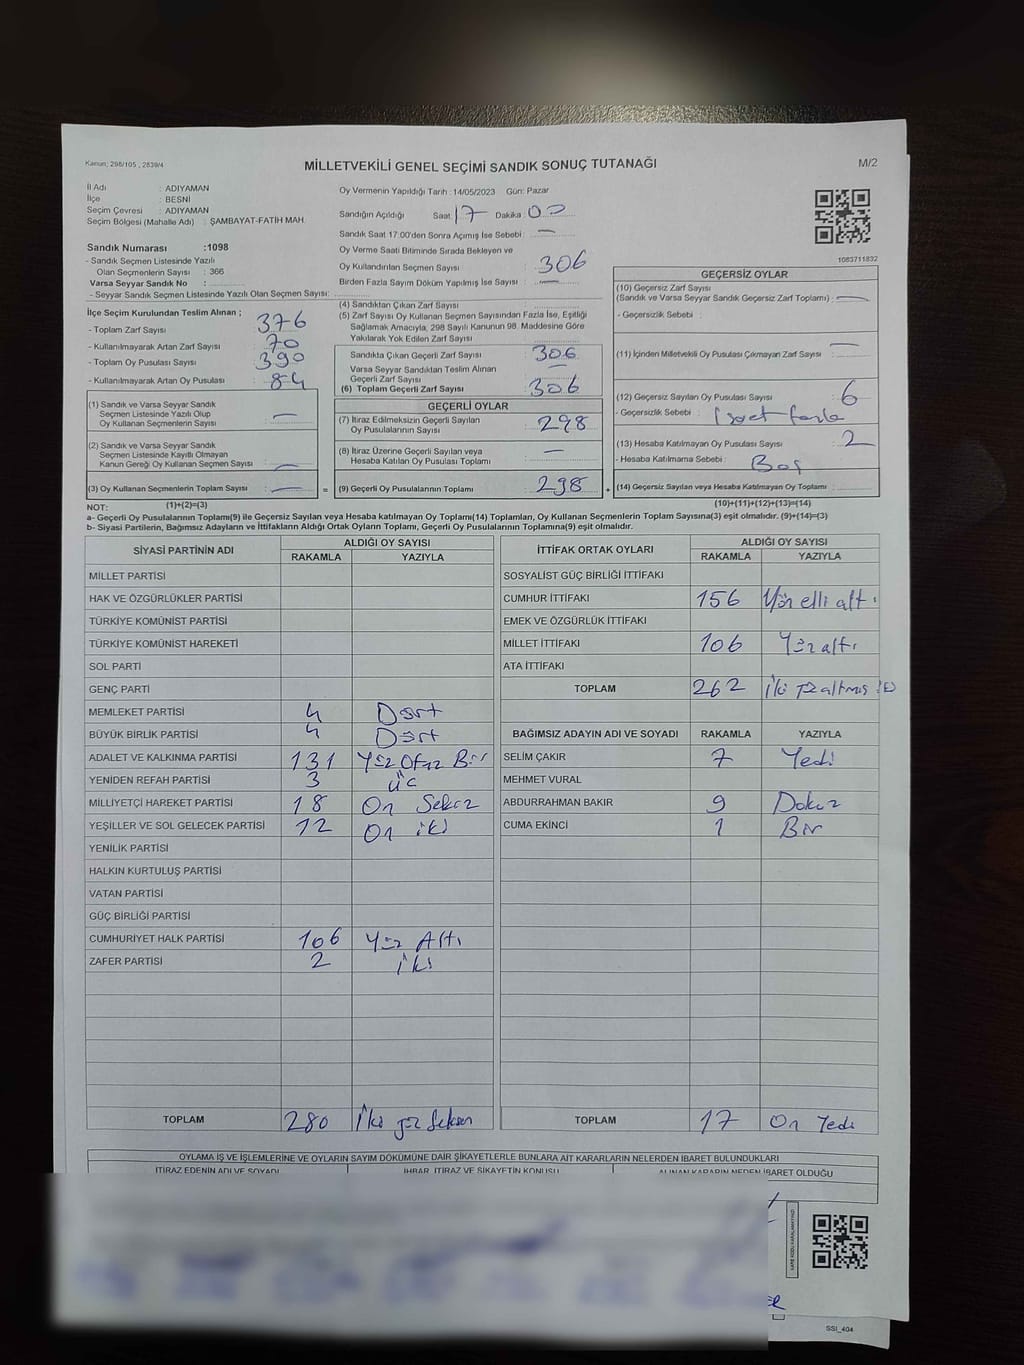 Kanun; 298/105 , 2839/4
MİLLETVEKİLİ GENEL SEÇİMİ SANDIK SONUÇ TUTANAĞI
M/2
İl Adı : ADIYAMAN
İlçe : BESNİ
Seçim Çevresi : ADIYAMAN
Seçim Bölgesi (Mahalle Adı) : ŞAMBAYAT-FATİH MAH.
Sandık Numarası :1098
- Sandık Seçmen Listesinde Yazılı
Olan Seçmenlerin Sayısı : 366
Varsa Seyyar Sandık No :
- Seyyar Sandık Seçmen Listesinde Yazılı Olan Seçmen Sayısı:
Oy Vermenin Yapıldığı Tarih : 14/05/2023 Gün: Pazar
Sandığın Açıldığı Saat 17 Dakika 00
Sandık Saat 17:00'den Sonra Açımış İse Sebebi : —
Oy Verme Saati Bitiminde Sırada Bekleyen ve
Oy Kullandırılan Seçmen Sayısı : 306
Birden Fazla Sayım Döküm Yapılmış İse Sayısı : —
1083711832
İlçe Seçim Kurulundan Teslim Alınan ;
- Toplam Zarf Sayısı : 376
- Kullanılmayarak Artan Zarf Sayısı : 70
- Toplam Oy Pusulası Sayısı : 390
- Kullanılmayarak Artan Oy Pusulası : 84
(1) Sandık ve Varsa Seyyar Sandık
Seçmen Listesinde Yazılı Olup
Oy Kullanan Seçmenlerin Sayısı : —
(2) Sandık ve Varsa Seyyar Sandık
Seçmen Listesinde Kayıtlı Olmayan
Kanun Gereği Oy Kullanan Seçmen Sayısı : —
(3) Oy Kullanan Seçmenlerin Toplam Sayısı : —
(4) Sandıktan Çıkan Zarf Sayısı :
(5) Zarf Sayısı Oy Kullanan Seçmen Sayısından Fazla İse, Eşitliği
Sağlamak Amacıyla, 298 Sayılı Kanunun 98. Maddesine Göre
Yakılarak Yok Edilen Zarf Sayısı :
Sandıkta Çıkan Geçerli Zarf Sayısı : 306
Varsa Seyyar Sandıktan Teslim Alınan
Geçerli Zarf Sayısı : —
(6) Toplam Geçerli Zarf Sayısı : 306
GEÇERLİ OYLAR
(7) İtiraz Edilmeksizin Geçerli Sayılan
Oy Pusulalarının Sayısı : 298
(8) İtiraz Üzerine Geçerli Sayılan veya
Hesaba Katılan Oy Pusulası Toplamı : —
= (9) Geçerli Oy Pusulalarının Toplamı : 298 +
GEÇERSİZ OYLAR
(10) Geçersiz Zarf Sayısı
(Sandık ve Varsa Seyyar Sandık Geçersiz Zarf Toplamı) : —
- Geçersizlik Sebebi :
(11) İçinden Milletvekili Oy Pusulası Çıkmayan Zarf Sayısı : —
(12) Geçersiz Sayılan Oy Pusulası Sayısı : 6
- Geçersizlik Sebebi :
(13) Hesaba Katılmayan Oy Pusulası Sayısı : 2
- Hesaba Katılmama Sebebi : Boş
(14) Geçersiz Sayılan veya Hesaba Katılmayan Oy Toplamı :
NOT: (1)+(2)=(3) (10)+(11)+(12)+(13)=(14)
a- Geçerli Oy Pusulalarının Toplamı(9) ile Geçersiz Sayılan veya Hesaba katılmayan Oy Toplamı(14) Toplamları, Oy Kullanan Seçmenlerin Toplam Sayısına(3) eşit olmalıdır. (9)+(14)=(3)
b- Siyasi Partilerin, Bağımsız Adayların ve İttifakların Aldığı Ortak Oyların Toplamı, Geçerli Oy Pusulalarının Toplamına(9) eşit olmalıdır.
SİYASİ PARTİNİN ADI ALDIĞI OY SAYISI
RAKAMLA YAZIYLA
MİLLET PARTİSİ
HAK VE ÖZGÜRLÜKLER PARTİSİ
TÜRKİYE KOMÜNİST PARTİSİ
TÜRKİYE KOMÜNİST HAREKETİ
SOL PARTİ
GENÇ PARTİ
MEMLEKET PARTİSİ 4 Dört
BÜYÜK BİRLİK PARTİSİ 4 Dört
ADALET VE KALKINMA PARTİSİ 131 Yüz Otuz Bir
YENİDEN REFAH PARTİSİ 3 üç
MİLLİYETÇİ HAREKET PARTİSİ 18 On Sekiz
YEŞİLLER VE SOL GELECEK PARTİSİ 12 On iki
YENİLİK PARTİSİ
HALKIN KURTULUŞ PARTİSİ
VATAN PARTİSİ
GÜÇ BİRLİĞİ PARTİSİ
CUMHURİYET HALK PARTİSİ 106 Yüz Altı
ZAFER PARTİSİ 2 iki
TOPLAM 280 İki yüz Seksen
İTTİFAK ORTAK OYLARI ALDIĞI OY SAYISI
RAKAMLA YAZIYLA
SOSYALİST GÜÇ BİRLİĞİ İTTİFAKI
CUMHUR İTTİFAKI 156 Yüz elli altı
EMEK VE ÖZGÜRLÜK İTTİFAKI
MİLLET İTTİFAKI 106 Yüz altı
ATA İTTİFAKI
TOPLAM 262 İki yüz altmış iki
BAĞIMSIZ ADAYIN ADI VE SOYADI RAKAMLA YAZIYLA
SELİM ÇAKIR 7 Yedi
MEHMET VURAL
ABDURRAHMAN BAKIR 9 Dokuz
CUMA EKİNCİ 1 Bir
TOPLAM 17 On Yedi
OYLAMA İŞ VE İŞLEMLERİNE VE OYLARIN SAYIM DÖKÜMÜNE DAİR ŞİKAYETLERLE BUNLARA AİT KARARLARIN NELERDEN İBARET BULUNDUKLARI
İTİRAZ EDENİN ADI VE SOYADI İHBAR, İTİRAZ VE ŞİKAYETİN KONUSU ALINAN KARARIN NEDEN İBARET OLDUĞU
SSI_404